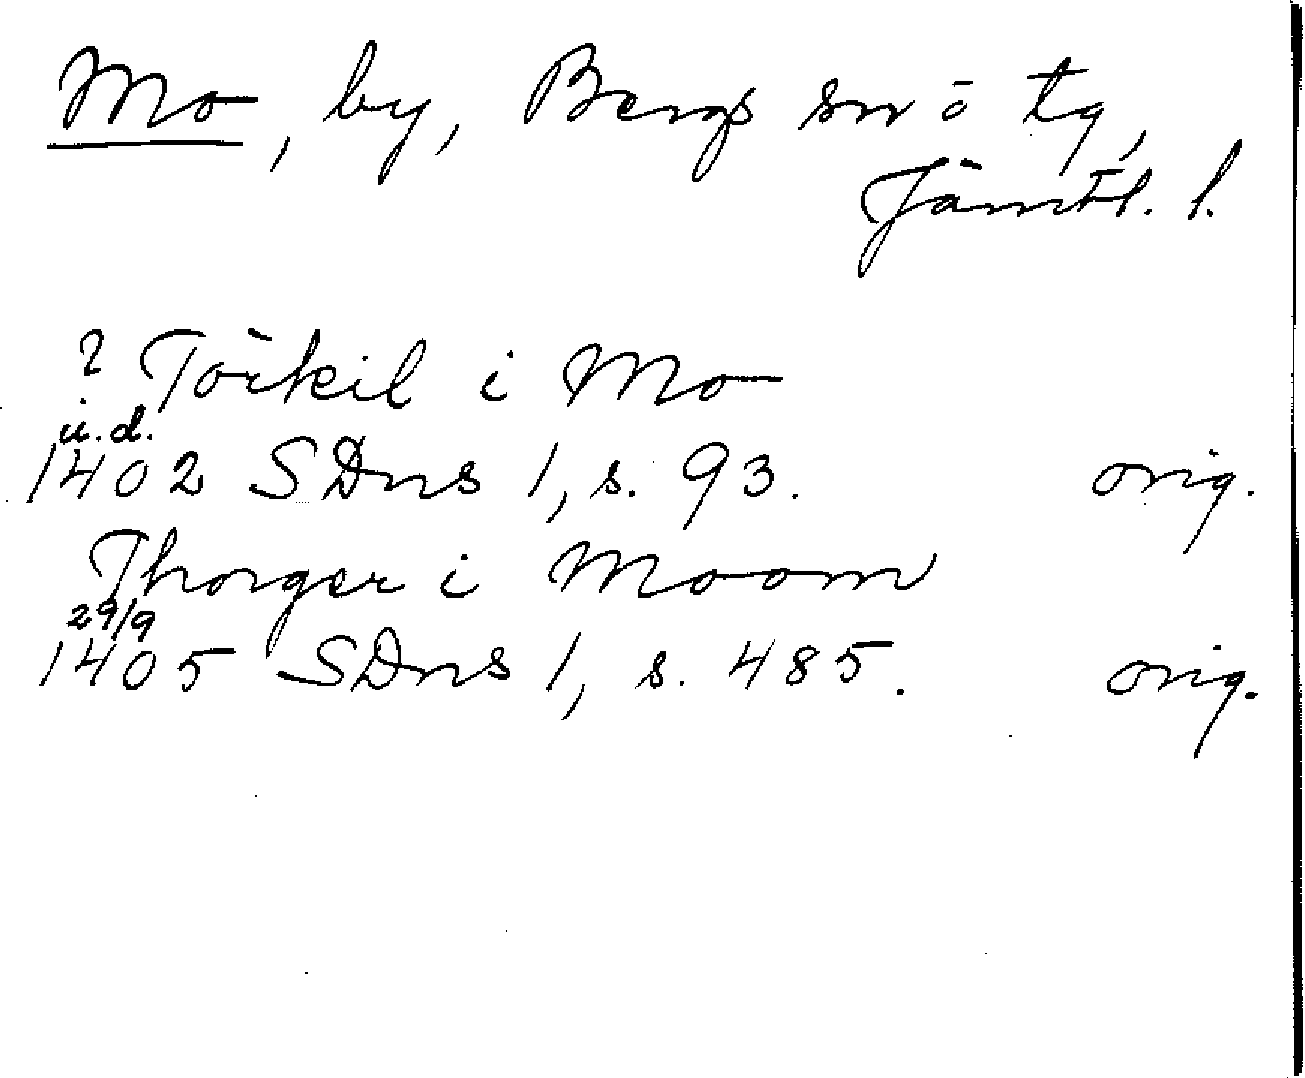 Mo, by, Bergs sn o tg,
Jämtl. l.
? Törkil i Mo
u. d.
1402 SDns 1, s. 93. orig.
Thorger i Moom
29/9
1405 SDns 1, s. 485. orig.